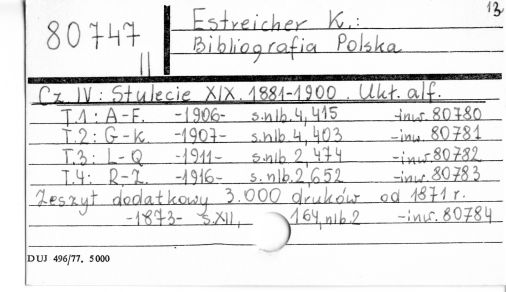 13
80747
II
Estreicher K.:
Bibliografia Polska
Cz IV: Stulecie XIX. 1881-1900. Ukł. alf.
T.1: A-F. -1906- s.nlb.4,415 -inw.80780
T.2: G-K. -1907- s.nlb.4,403 -inw.80781
T.3: L-Q -1911- s.nlb 2,474 -inw.80782
T.4: R-Z. -1916- s.nlb.2,652 -inw.80783
Zeszyt dodatkowy 3.000 druków od 1871 r.
-1873- s.XII, 164, nlb.2 -inw.80784
DUJ 496/77. 5000